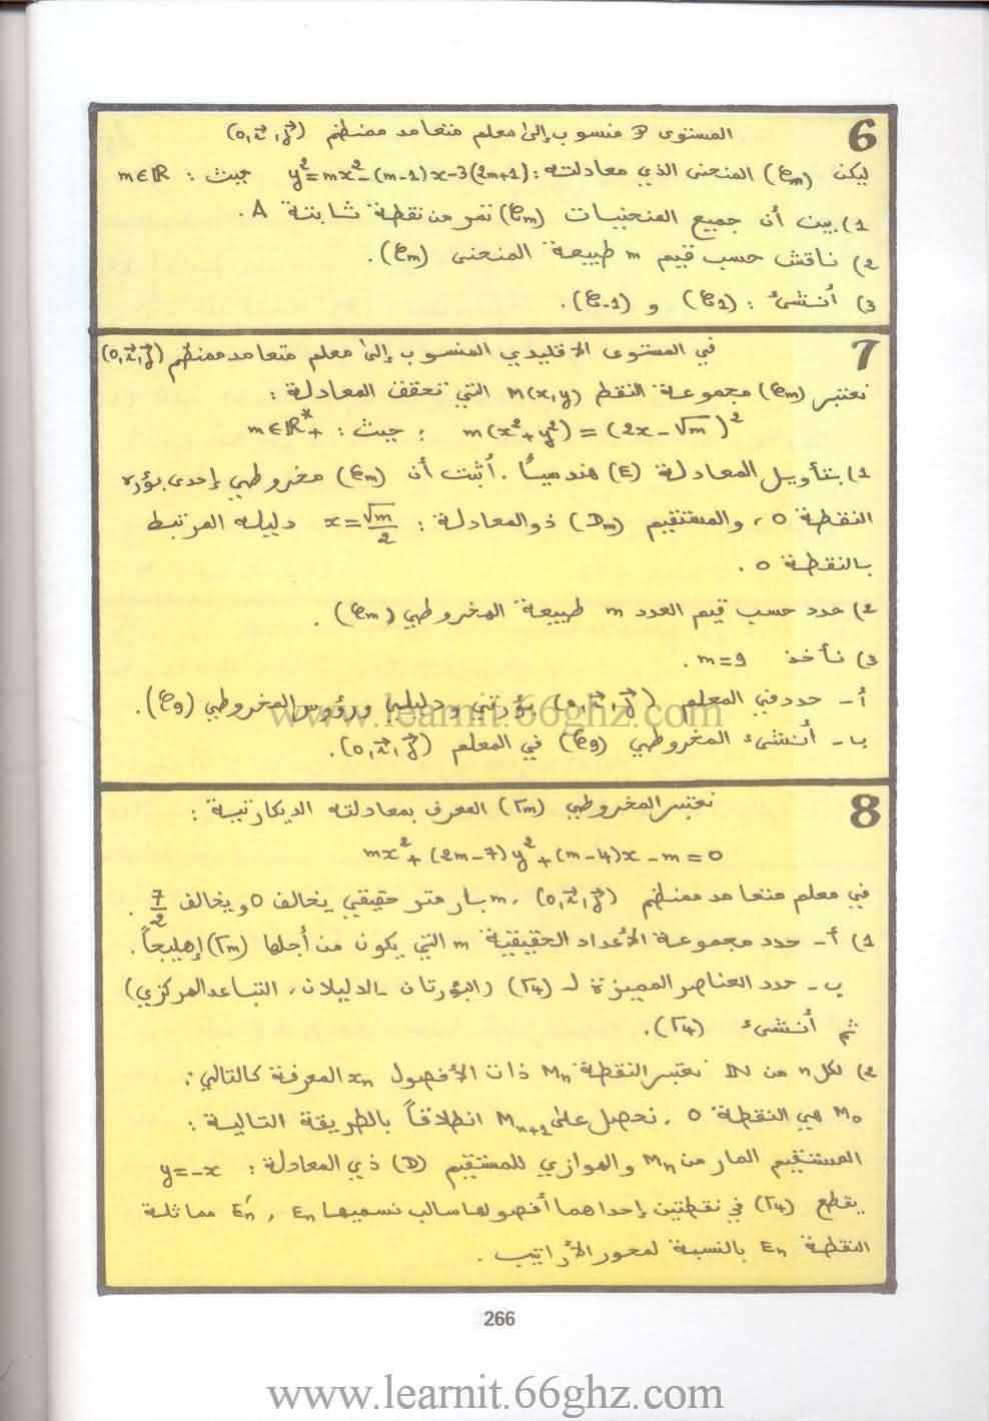 6
المستوى P منسوب إلى معلم متعامد ممنظم (o,i⃗,j⃗)
ليكن (Cm) المنحنى الذي معادلته: y²=mx²-(m-1)x-3(2m+1) حيث: m∈ℝ
1) بين أن جميع المنحنيات (Cm) تمر من نقطة ثابتة A.
2) ناقش حسب قيم m طبيعة المنحنى (Cm).
3) أنشئ: (C1) و (C-1).
7
في المستوى الاقليدي المنسوب إلى معلم متعامد ممنظم (o,i⃗,j⃗)
نعتبر (Cm) مجموعة النقط M(x,y) التي تحقق المعادلة:
m(x²+y²)=(2x-√m)² ; حيث: m∈ℝ*+
1) بتأويل المعادلة (E) هندسيًا. أثبت أن (Cm) مخروطي إحدى بؤره
النقطة o، والمستقيم (Dm) ذو المعادلة: x=√m/2 دليله المرتبط
بالنقطة o.
2) حدد حسب قيم العدد m طبيعة المخروطي (Cm).
3) نأخذ m=9.
أ- حدد في المعلم (o,i⃗,j⃗) بؤرتي ودليلي ورؤوس المخروطي (C9).
ب- أنشئ المخروطي (C9) في المعلم (o,i⃗,j⃗).
8
نعتبر المخروطي (Γm) المعرف بمعادلته الديكارتية:
mx²+(2m-7)y²+(m-4)x-m=0
في معلم متعامد ممنظم (o,i⃗,j⃗). m بارمتر حقيقي يخالف 0 ويخالف 7/2.
1) أ- حدد مجموعة الأعداد الحقيقية m التي يكون من أجلها (Γm) إهليجاً.
ب- حدد العناصر المميزة لـ (Γ4) (البؤرتان - الدليلان، التباعد المركزي)
ثم أنشئ (Γ4).
2) لكل n من ℕ نعتبر النقطة Mn ذات الأفصول xn المعرفة كالتالي:
M0 هي النقطة o، نحصل على Mn+1 انطلاقاً بالطريقة التالية:
المستقيم المار من Mn والموازي للمستقيم (D) ذي المعادلة: y=-x
يقطع (Γ4) في نقطتين إحداهما أفصولها سالب نسميها En، E'n مماثلة
النقطة En بالنسبة لمحور الأراتيب.
266
www.learnit.66ghz.com
www.learnit.66ghz.com